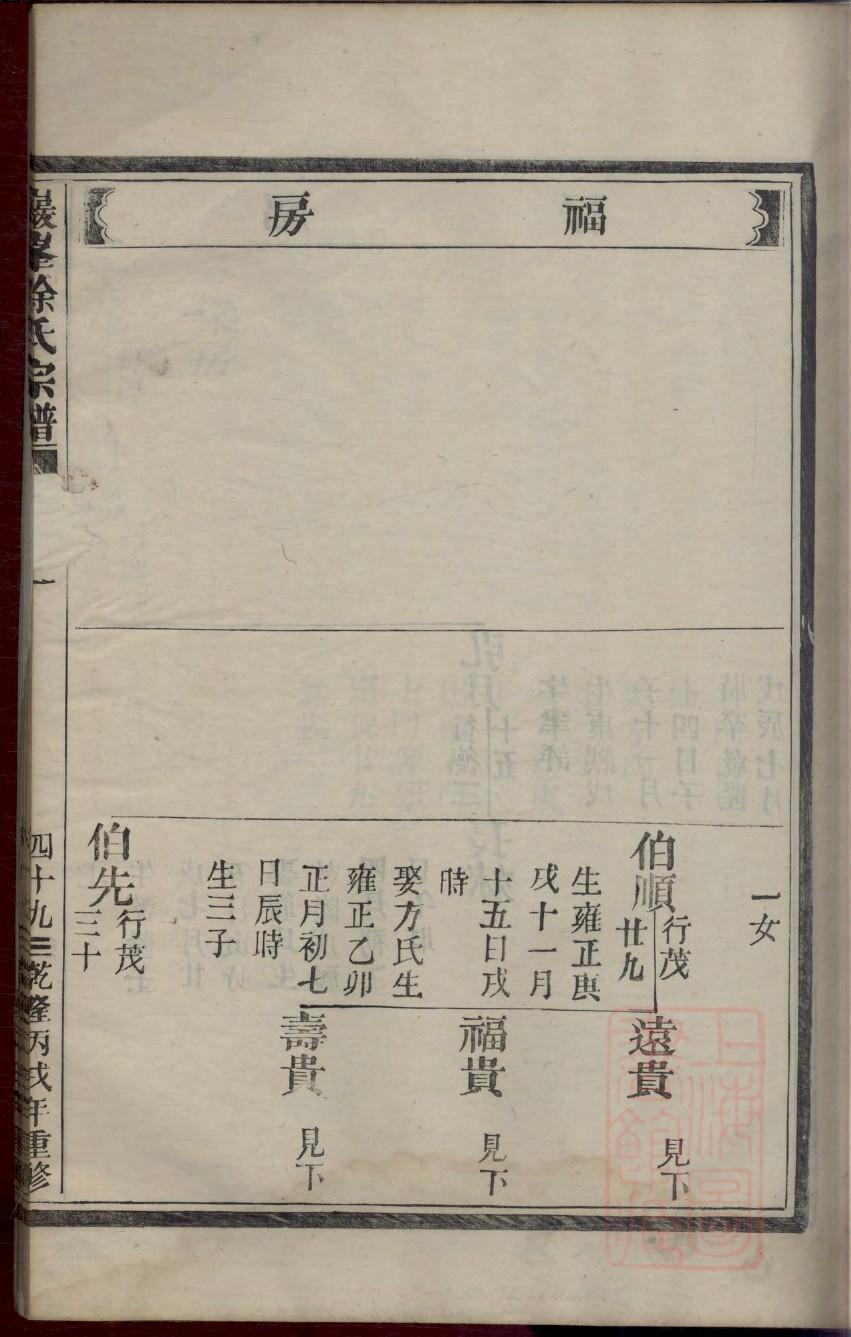 福房
一女
伯順
行茂
廿九
生雍正庚
戌十一月
十五日戌
時
娶方氏生
雍正乙卯
正月初七
日辰時
生三子
遠貴
見下
福貴
見下
壽貴
見下
伯先
行茂
三十
巖峯徐氏宗譜
一
四十九
乾隆丙戌年重修